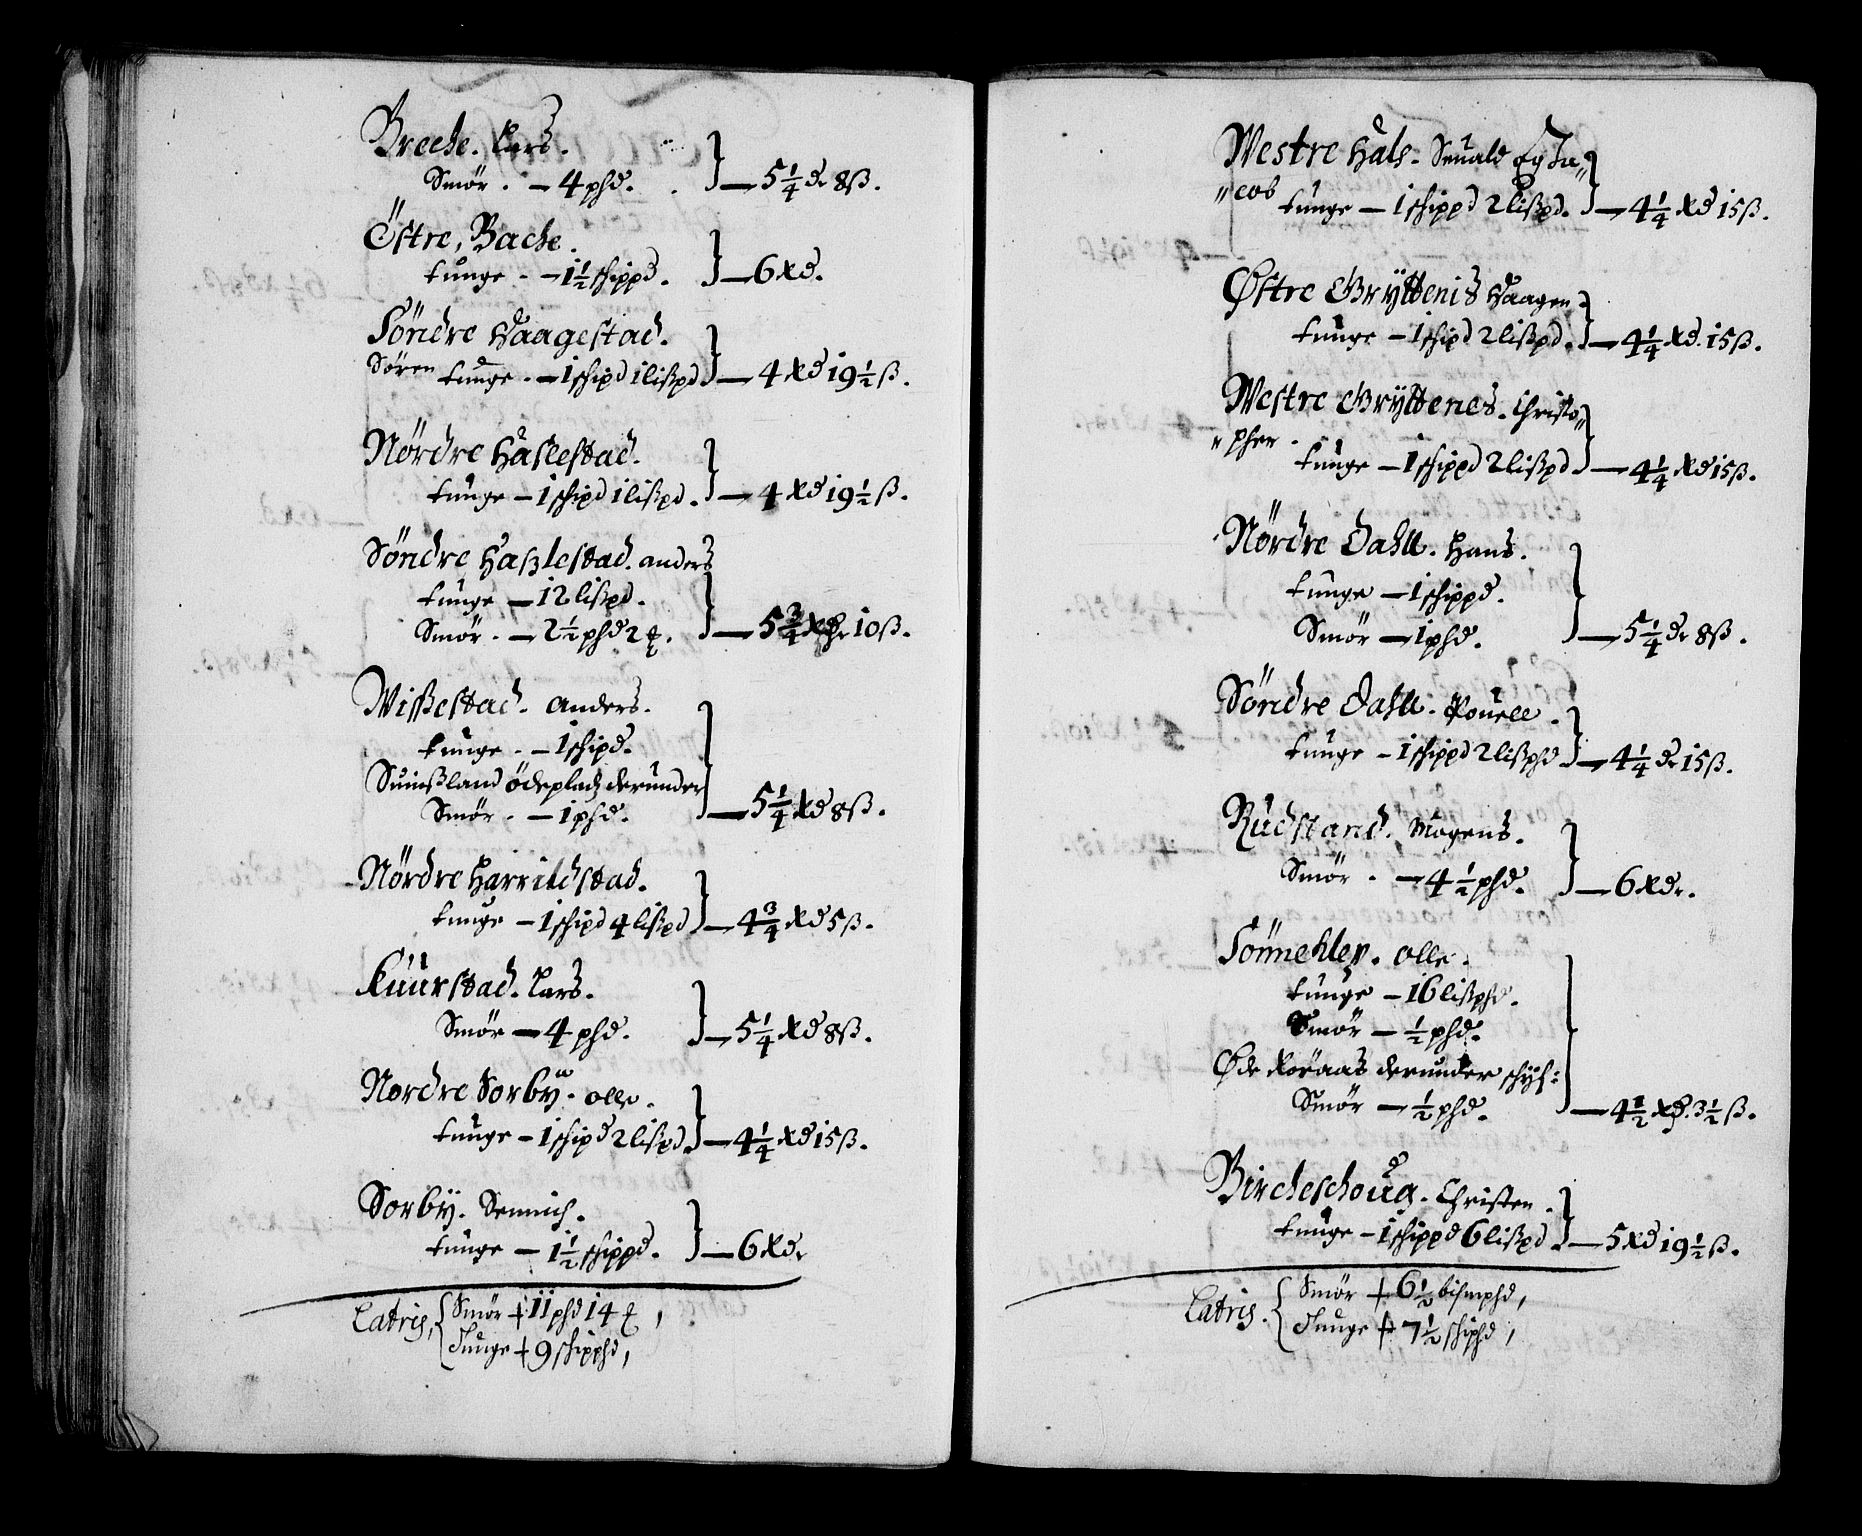 Breche. Lars.
Smör. — 4 phd. — 5 1/4 dr 8ß.
Östre, Bache.
tunge. — 1 1/2 schippd. — 6 Rd.
Söndre Haagestad.
Sören tunge. — 1 schipd 1 lißpd — 4 Rd 19 1/2 ß.
Nördre Haslestad.
tunge — 1 schipd 1 lißpd. — 4 Rd 19 1/2 ß.
Söndre Haßlestad. anders
tunge — 12 lißpd.
Smör. — 2 1/2 phd 2 — 5 3/4 Rdr 10ß.
Wißestad. anders.
tunge. — 1 schipd.
Suinßland ödeplads derunder
Smör. — 1 phd. — 5 1/4 Rd 8ß.
Nördre Harrildstad.
tunge — 1 schipd 4 lißpd — 4 3/4 Rd 5ß.
Fuurstad. Lars.
Smör — 4 phd. — 5 1/4 Rd 8ß.
Nordre Sorby. olle.
tunge — 1 schipd 2 lißpd. — 4 1/4 Rd 15ß.
Sorby. Sennich.
tunge — 1 1/2 schippd. — 6 Rdr
Latris, Smör + 11 phd 14
Tunge + 9 schipphd,
Westre Hals. Seuald Og Ja„
„cob tunge — 1 schippd 2 lißpd. — 4 1/4 Rd 15ß.
Østre Gryttenis Haagen.
tunge — 1 schipd 2 lißpd. — 4 1/4 Rd. 15ß.
Westre Gryttenes. Christo„
„pher.
tunge — 1 schippd 2 lißpd — 4 1/4 Rd 15ß.
Nördre Dahll. Hans.
tunge — 1 schippd.
Smör — 1 phd. — 5 1/4 dr 8ß.
Söndre Dahll. Pouell.
tunge — 1 schippd 2 lißphd — 4 1/4 dr 15ß.
Rudstand. Mogens.
Smör. — 4 1/2 phd. — 6 Rdr.
Sönnehley. olle.
tunge — 16 lißphd.
Smör — 1/2 phd.
Øde Roraas derunder schyl:
Smör — 1/2 phd. — 4 1/2 Rd. 3 1/2 ß.
Bircheschoug. Christen.
tunge — 1 schippd 6 lißpd. — 5 Rd 19 1/2 ß.
Latris. Smör + 6 1/2 bismphd,
Tunge + 7 1/2 schiphd,